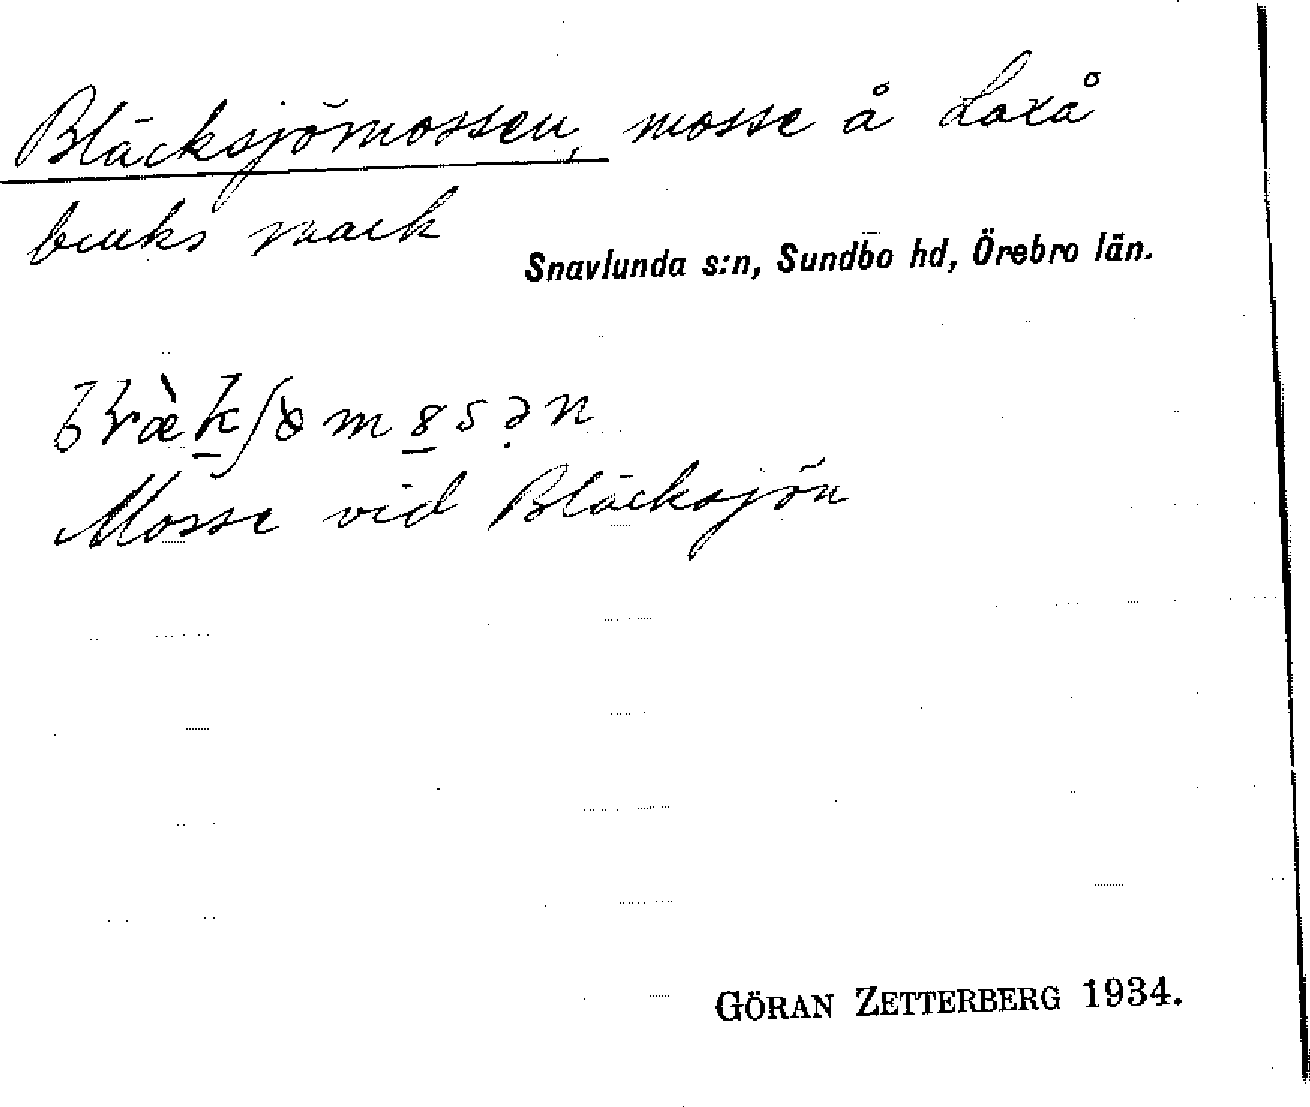 Bläcksjömossen, mosse å Laxå
bruks mark
Snavlunda s:n, Sundbo hd, Örebro län.
Mosse vid Bläcksjön
GÖRAN ZETTERBERG 1934.